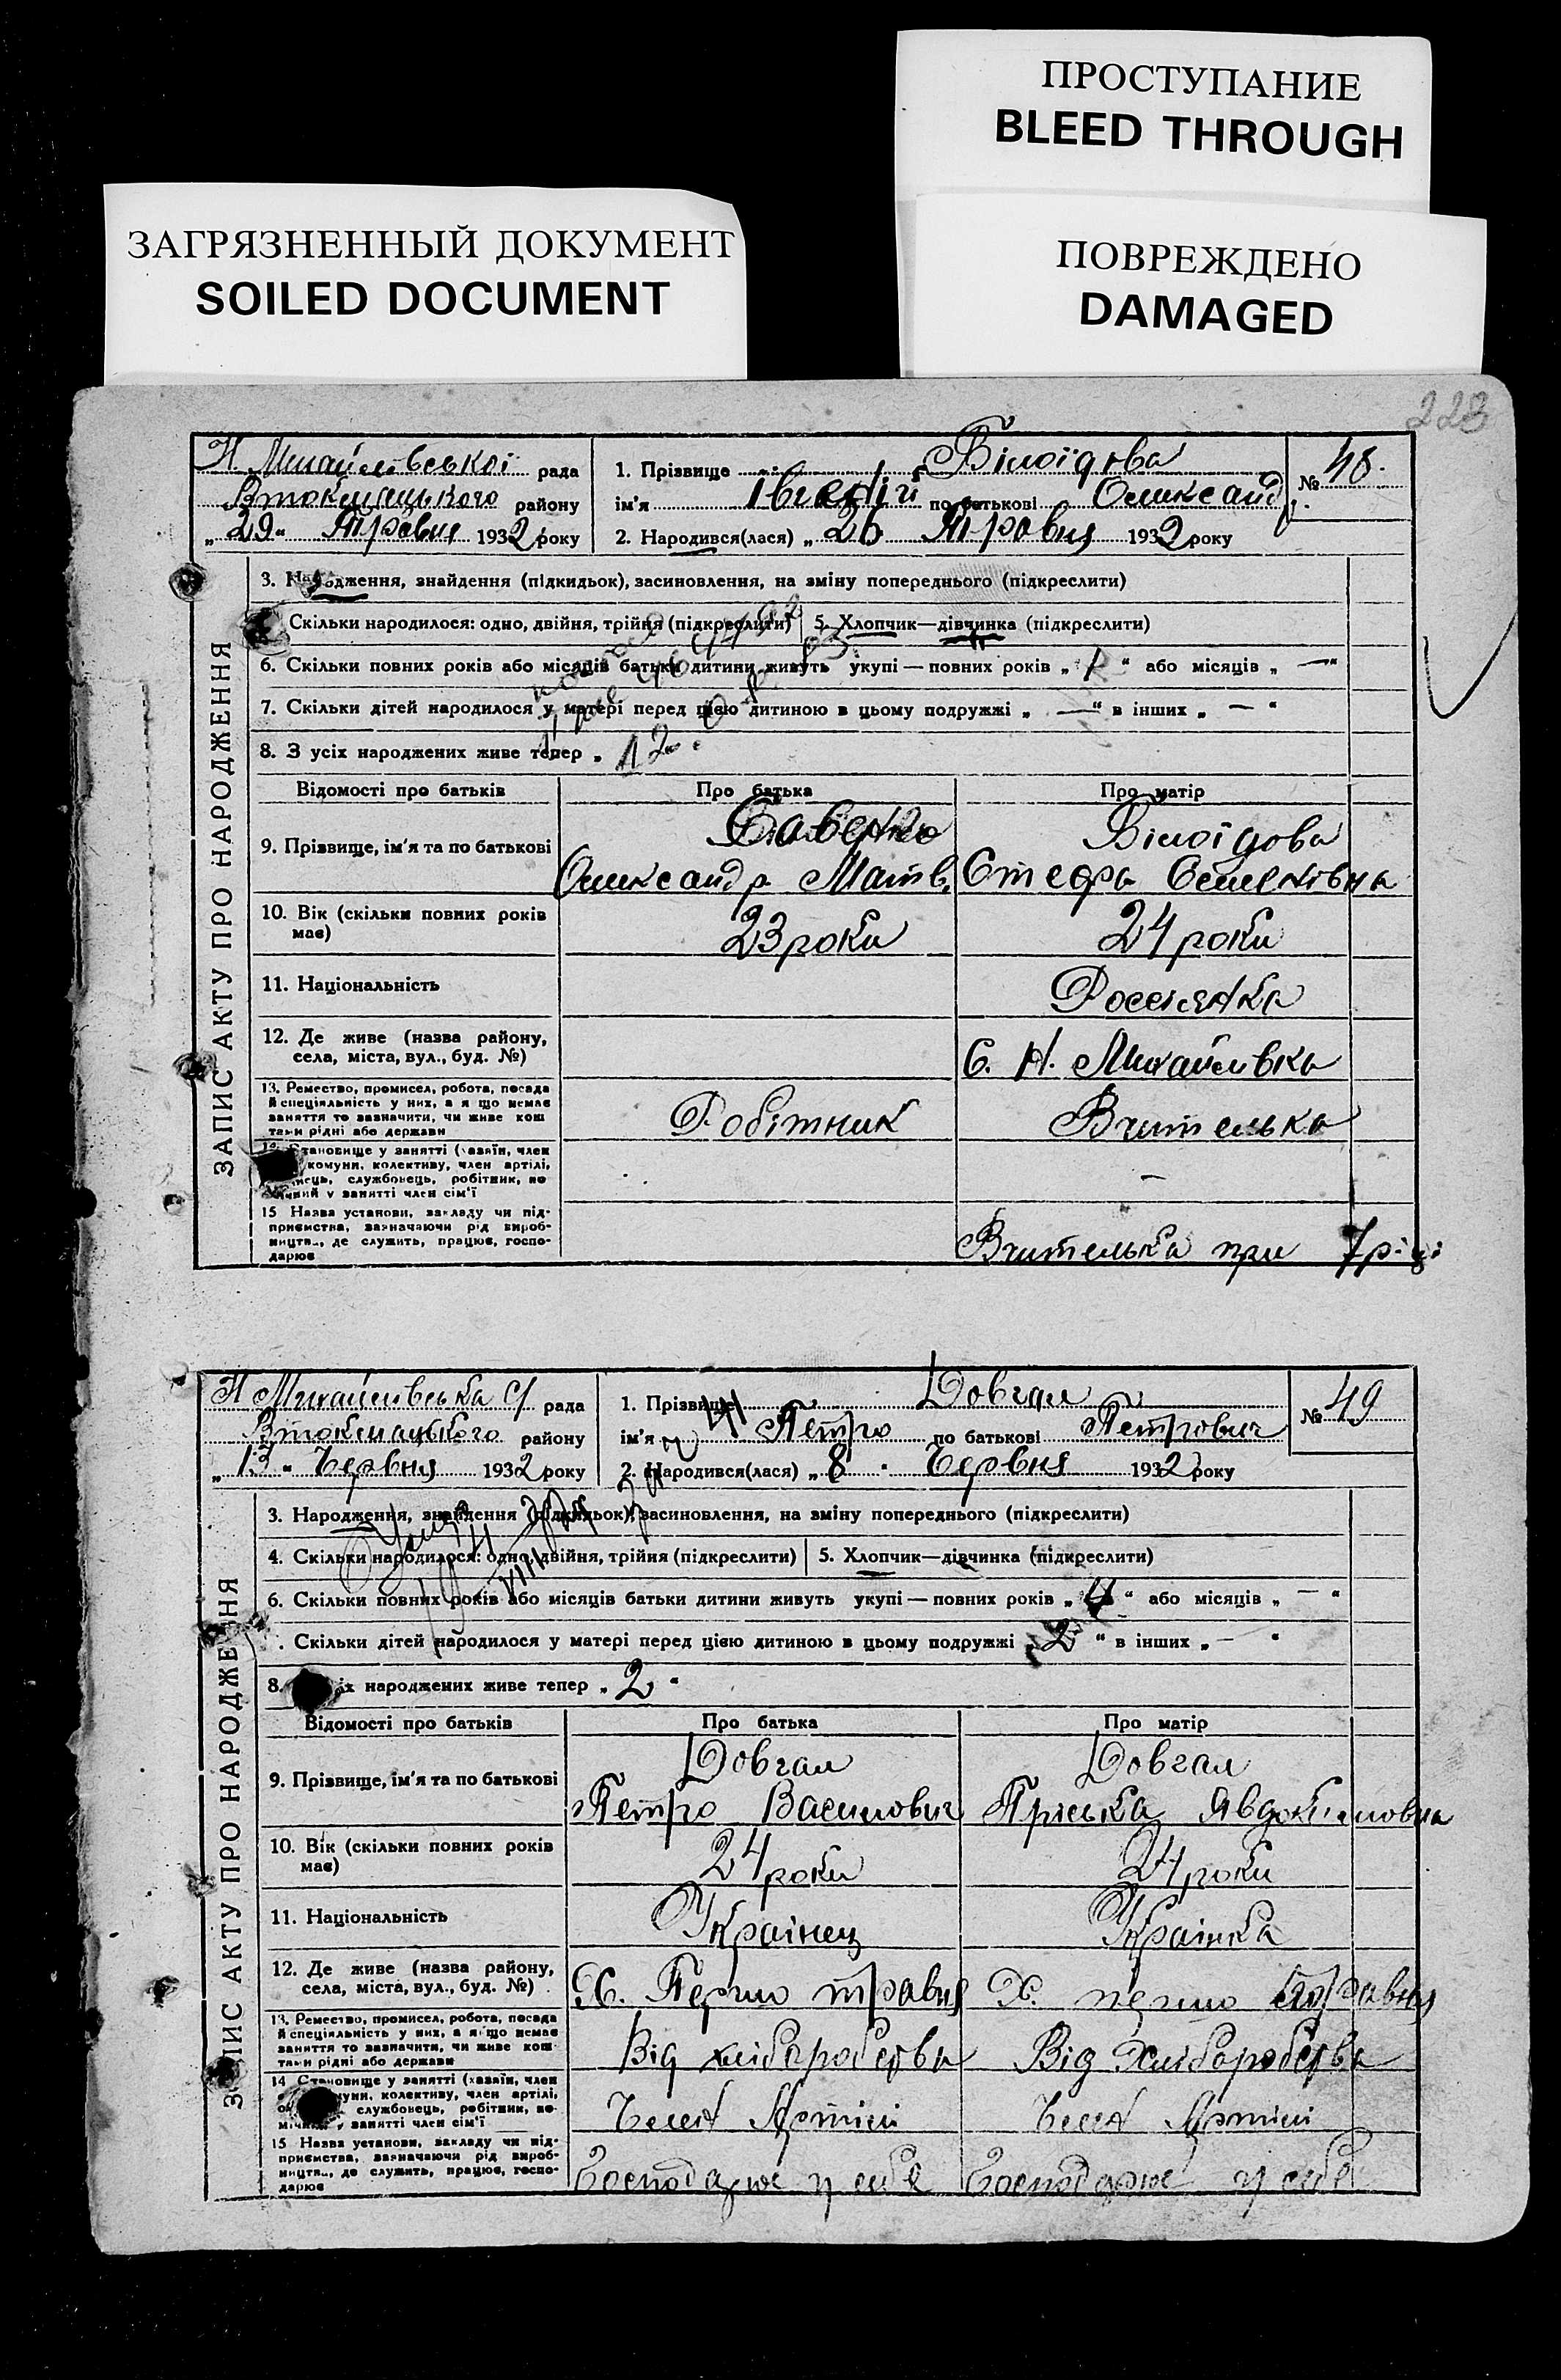 ПРОСТУПАНИЕ
BLEED THROUGH
ЗАГРЯЗНЕННЫЙ ДОКУМЕНТ
SOILED DOCUMENT
ПОВРЕЖДЕНО
DAMAGED
223
ЗАПИС АКТУ ПРО НАРОДЖЕННЯ
Н Михайлівської рада
Втокмацького району
„29“ Травня 1932 року
1. Прізвище Білоїдова
ім'я по батькові Олександ.
№ 48.
2. Народився(лася) „26 Травня 1932 року
3. Народження, знайдення (підкидьок), засиновлення, на зміну попереднього (підкреслити)
Скільки народилося: одно, двійня, трійня (підкреслити) 5. Хлопчик—дівчинка (підкреслити)
6. Скільки повних років або місяців батьки дитини живуть укупі — повних років „1“ або місяців „—“
7. Скільки дітей народилося у матері перед цією дитиною в цьому подружжі „—“ в інших „—“
8. З усіх народжених живе тепер „
Відомості про батьків Про батька Про матір
9. Прізвище, ім'я та по батькові
Білоїдова
Олександр Матв. Стефа Семенівна
10. Вік (скільки повних років має) 23 роки 24 роки
11. Національність Россіянка
12. Де живе (назва району, села, міста, вул., буд. №) С. Н. Михайлівка
13. Ремество, промисел, робота, посада й спеціяльність у них, а якщо немає заняття то зазначити, чи живе коштами рідні або держави Робітник Вчителька
Становище у занятті (хазяїн, член комуни, колективу, член артілі, службовець, робітник, у занятті член сім'ї —
15 Назва установи, закладу чи підприємства, зазначаючи рід виробництв., де служить, працює, господарює Вчителька при 7р.
Н Михайлівська с/ рада
Втокмацького району
„13“ Червня 1932 року
1. Прізвище Довгал
ім'я Петро по батькові Петрович
№ 49
2. Народився(лася) „8 Червня 1932 року
3. Народження, знайдення (підкидьок), засиновлення, на зміну попереднього (підкреслити)
4. Скільки народилося: одно, двійня, трійня (підкреслити) 5. Хлопчик—дівчинка (підкреслити)
6. Скільки повних років або місяців батьки дитини живуть укупі — повних років „4“ або місяців „—“
Скільки дітей народилося у матері перед цією дитиною в цьому подружжі „2“ в інших „—“
8. народжених живе тепер „2“
Відомості про батьків Про батька Про матір
9. Прізвище, ім'я та по батькові Довгал Довгал
Петро Василович Пріська Явдокимовна
10. Вік (скільки повних років має) 24 роки 24 роки
11. Національність Українец Українка
12. Де живе (назва району, села, міста, вул., буд. №) Х. Перше травня Х. перше травня
13. Ремество, промисел, робота, посада й спеціяльність у них, а якщо немає заняття то зазначити, чи живе коштами рідні або держави Від хліборобства Від Хліборобства
14 Становище у занятті (хазяїн, член колективу, член артілі, службовець, робітник, у занятті член сім'ї Член Артілі Член Артілі
15 Назва установи, закладу чи підприємства, зазначаючи рід виробництв., де служить, працює, господарює Господарює у себе Господарює у себе
ЗАПИС АКТУ ПРО НАРОДЖЕННЯ